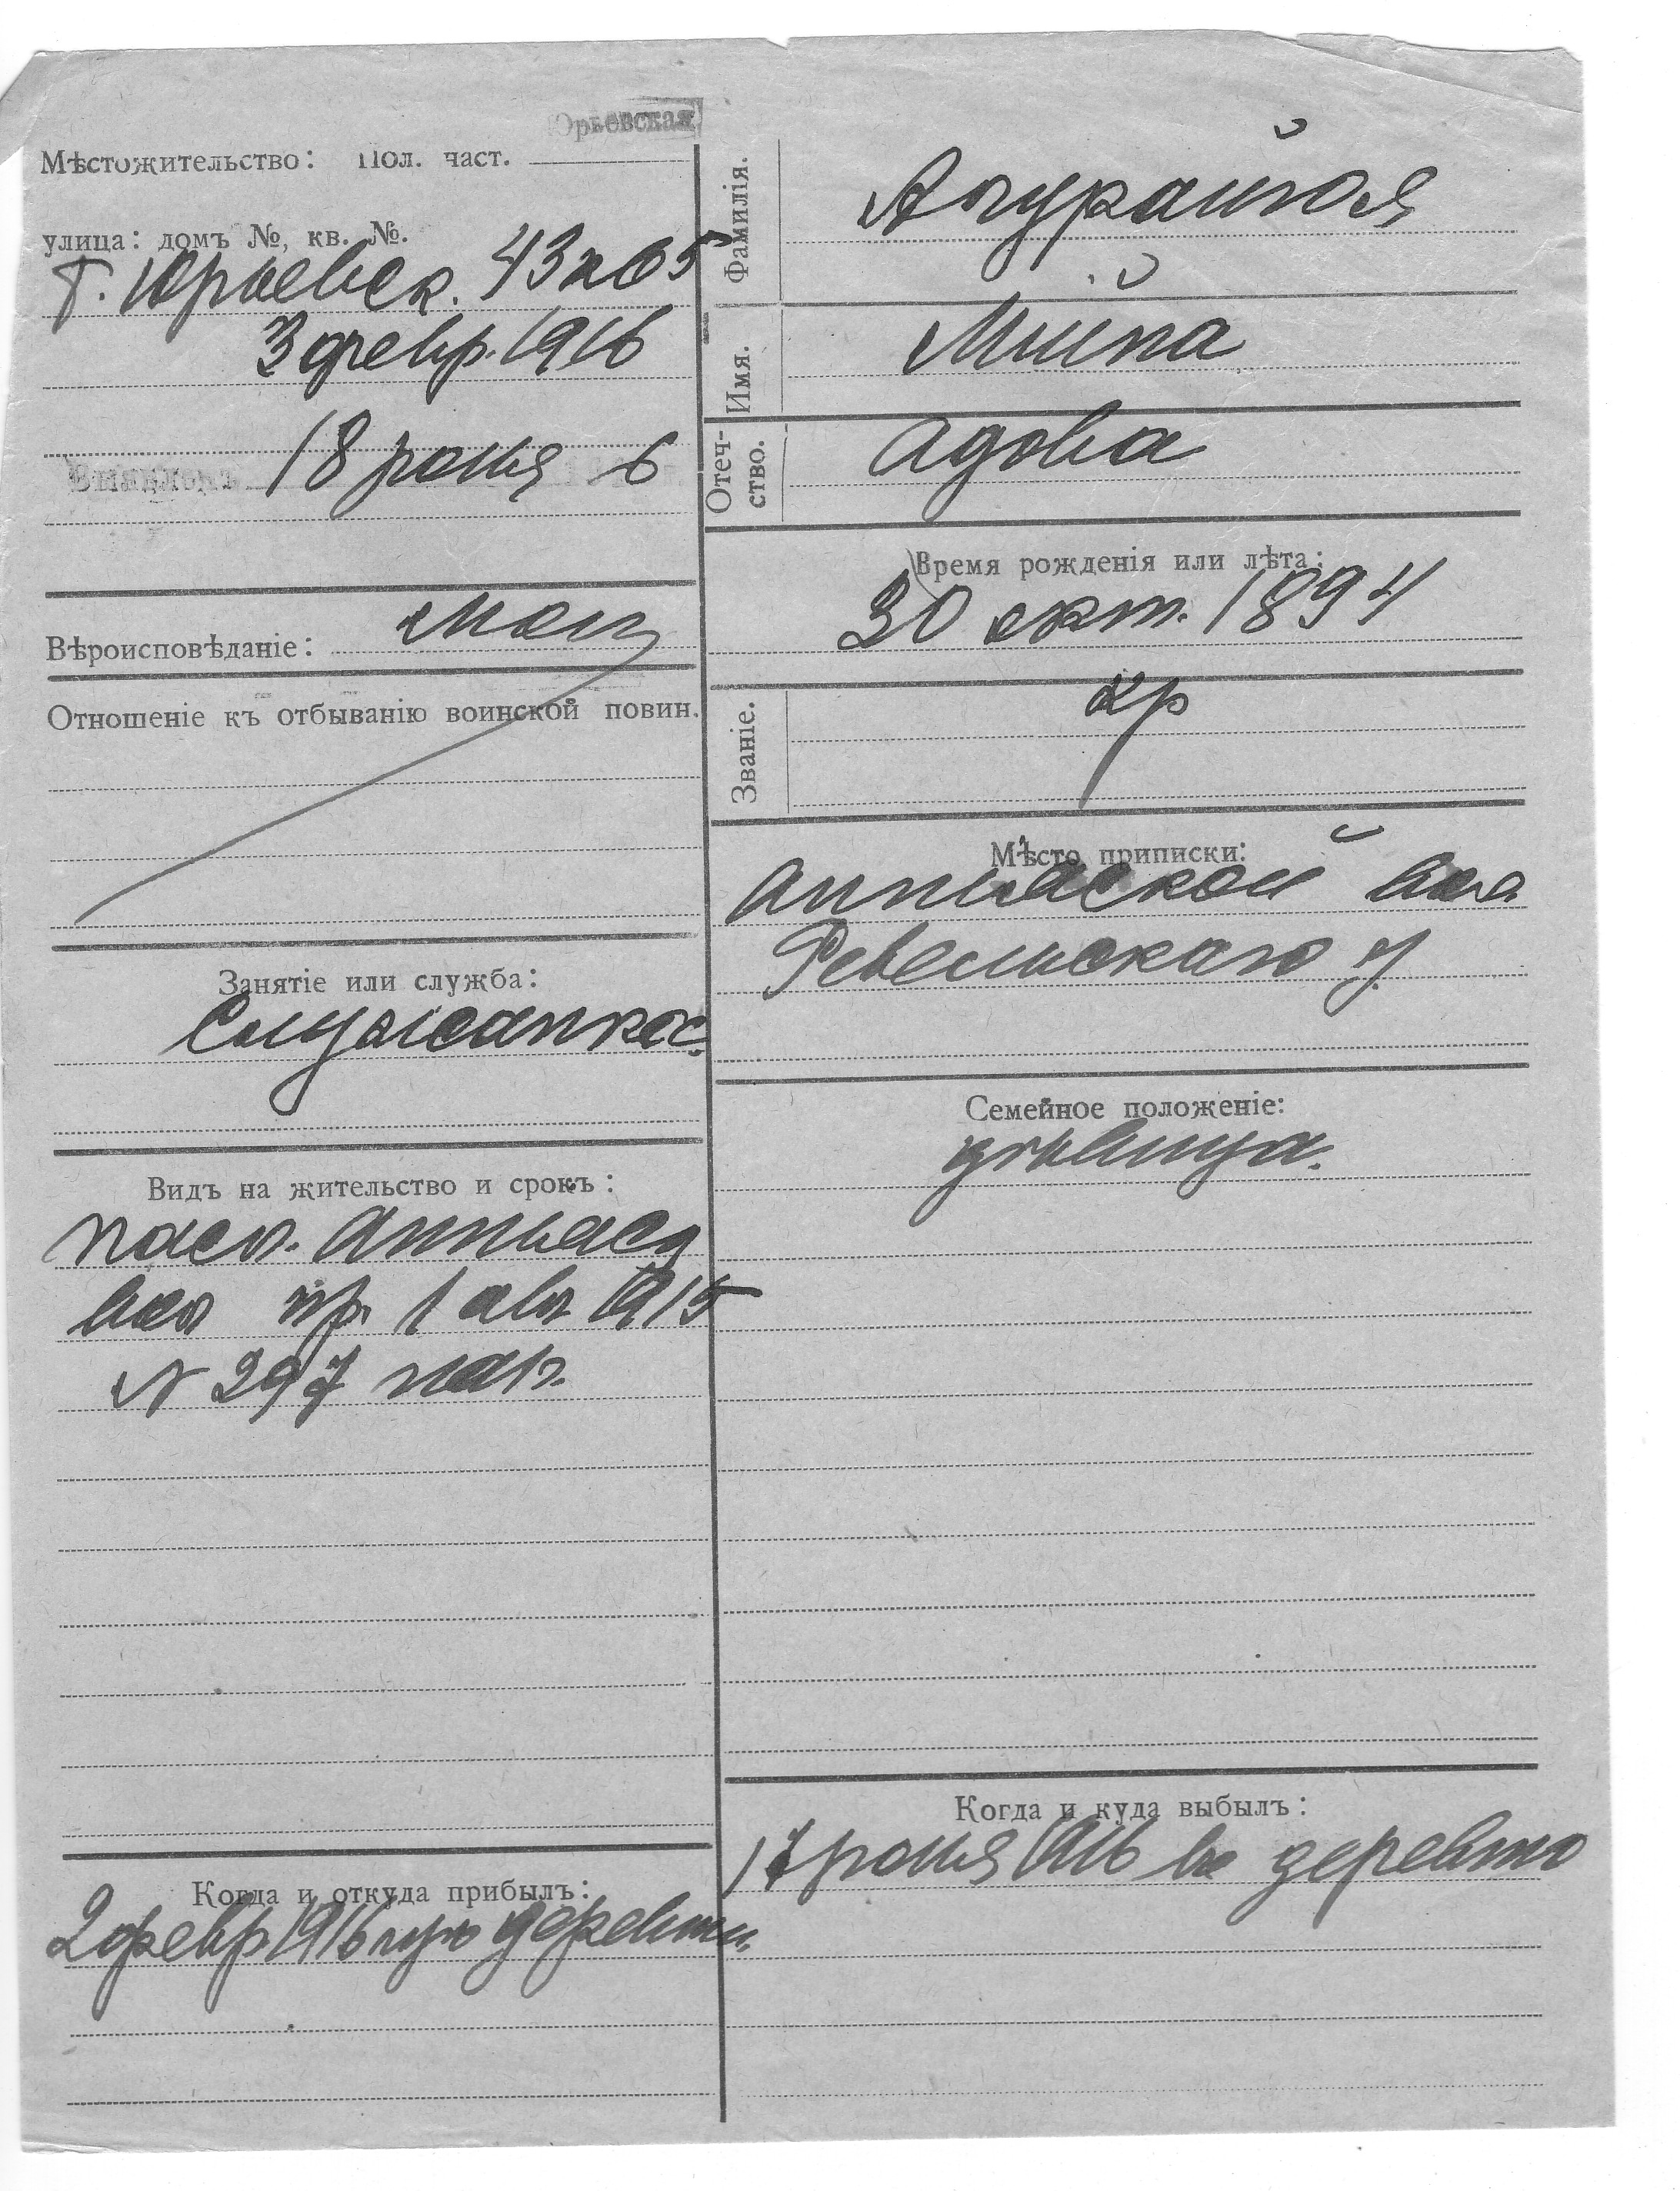 Юрьевская
Мѣстожительство: Пол. част.
улица: домъ №, кв. №.
Г. Юрьевск. 43 кв 5
3 февр. 1916
18 июня 6
Вѣроисповѣданіе:
Отношеніе къ отбыванію воинской повин.
Занятіе или служба:
Служанкас.
Видъ на жительство и срокъ:
пасп. Анніаск
вол пр. 1 авг 1915
N 297
Когда и откуда прибылъ:
2 февр 1916 изъ деревни.
Фамилія.
Имя.
Мийна
Отеч-
ство.
Адова
Время рожденія или лѣта:
30 окт. 1894
Званіе.
кр
Мѣсто приписки:
Анніаской вол.
Ревельскаго у.
Семейное положеніе:
дѣвица.
Когда и куда выбылъ:
17 июня 1916 въ деревню